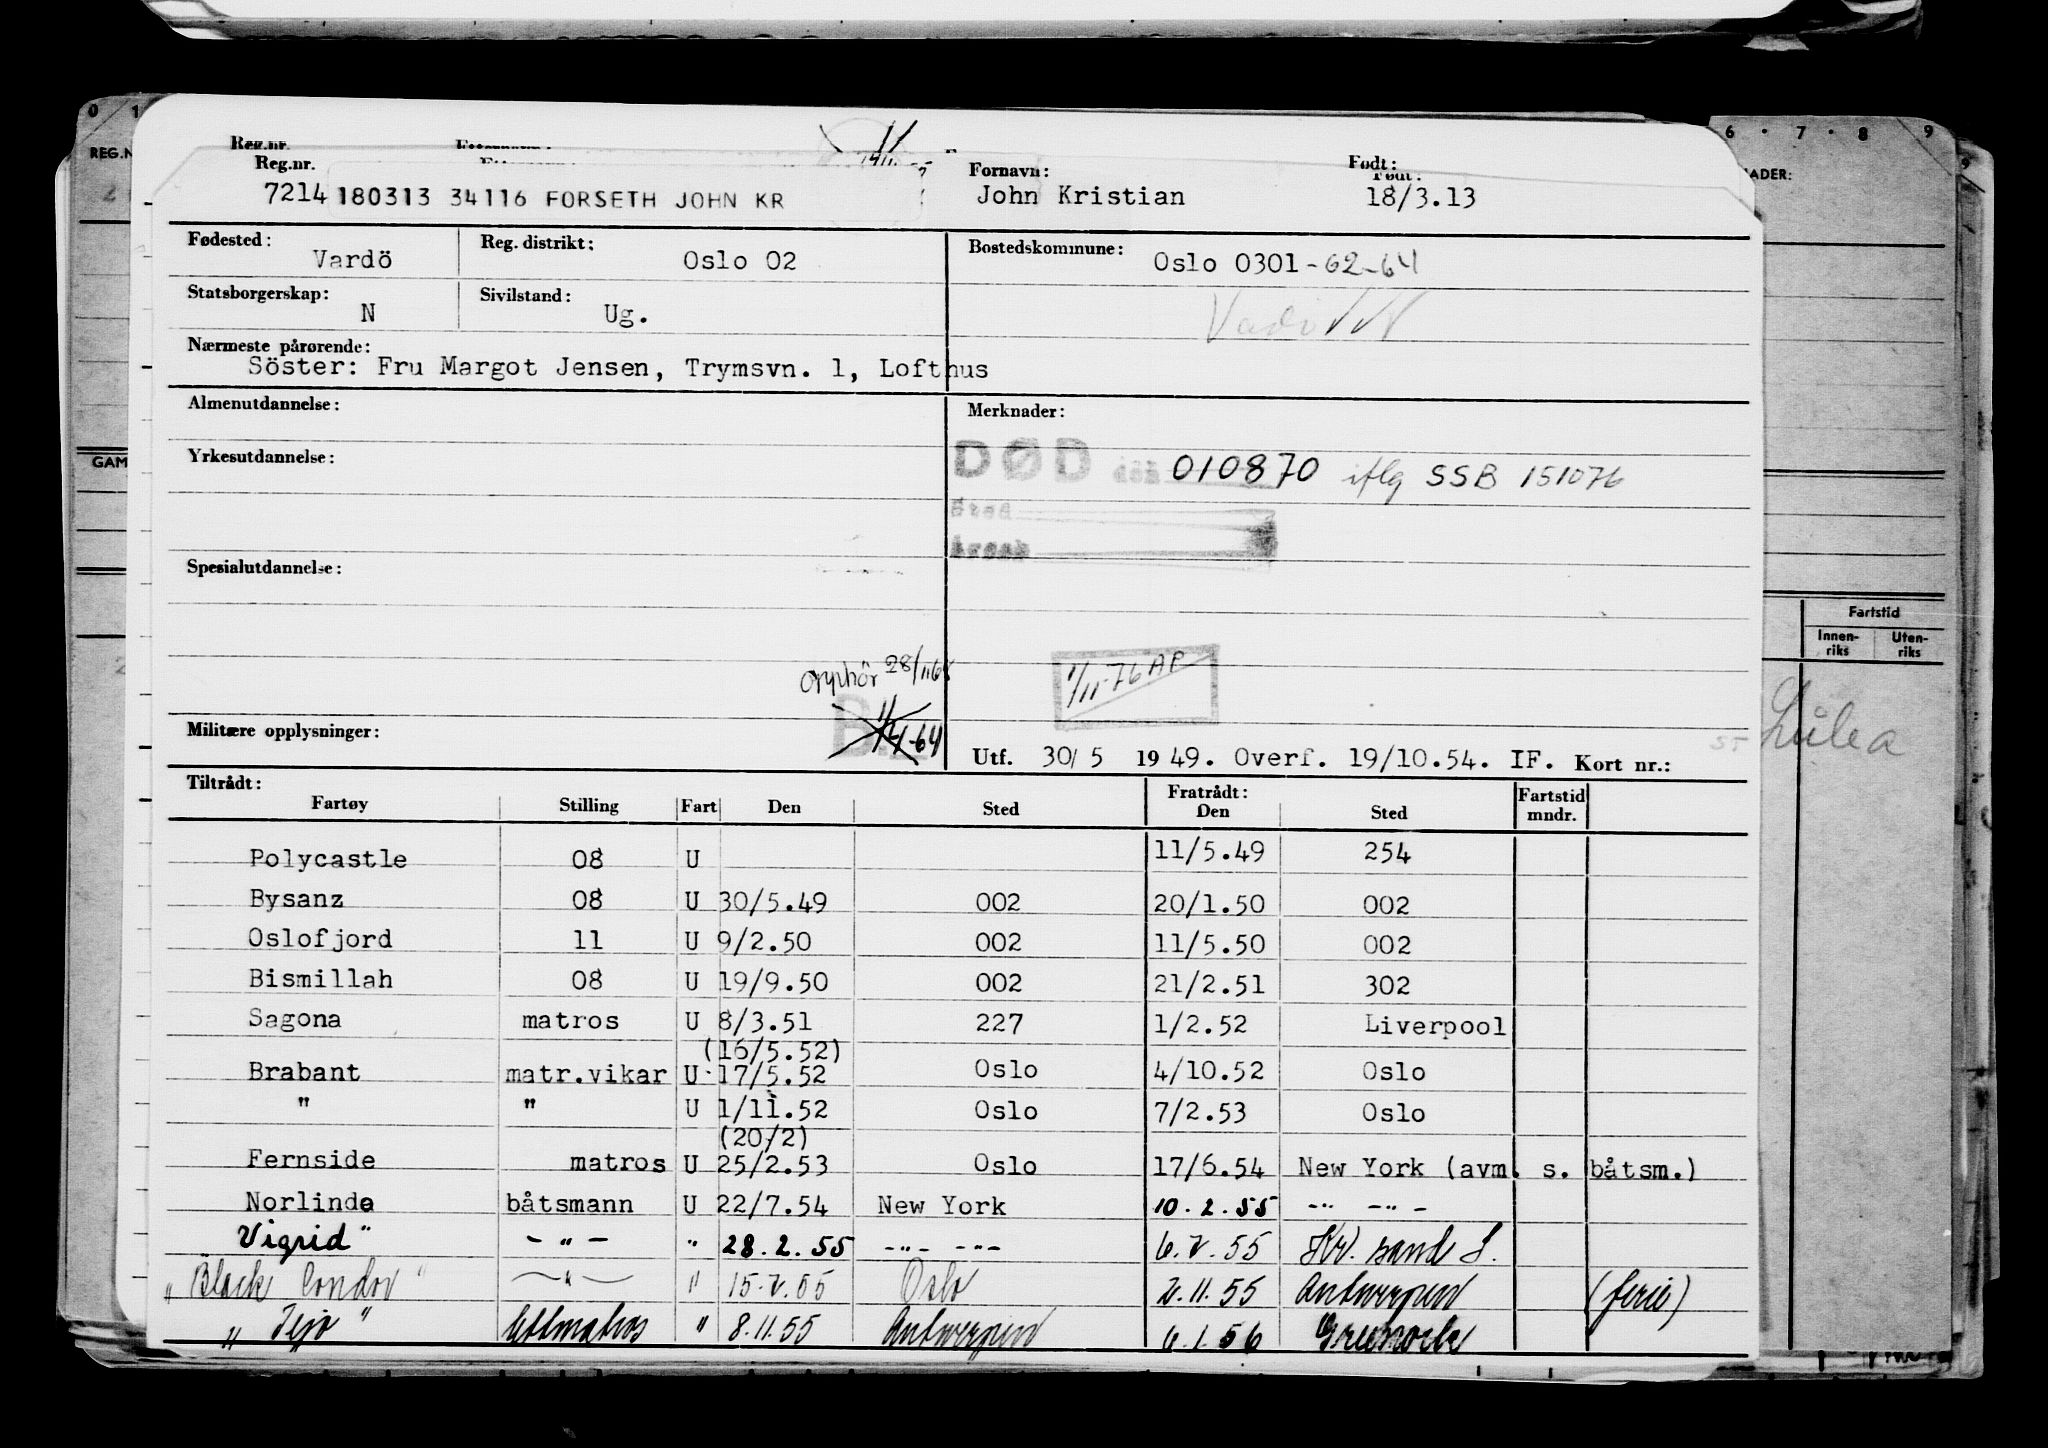 0 1 6 · 7 · 8 9
REG.N ADER:
Reg.nr.
Reg.nr. Fornavn: Født:
7214 180313 34116 FORSETH JOHN KR John Kristian 18/3.13
Fødested: Vardö Reg. distrikt: Oslo 02 Bostedskommune: Oslo 0301 -62-64
Statsborgerskap: N Sivilstand: Ug.
Nærmeste pårørende:
Söster: Fru Margot Jensen, Trymsvn. 1, Lofthus
Almenutdannelse: Merknader:
DØD død 010870 iflg SSB 151076
Yrkesutdannelse:
GAM
Sted
Årsak
Spesialutdannelse:
Fartstid
Innen-riks Uten-riks
Opphör 28/11 64
1/11-76 AP
Luleå
Militære opplysninger: Utf. 30/5 1949. Overf. 19/10.54. IF. Kort nr.:
Tiltrådt: Fratrådt:
Fartøy Stilling Fart Den Sted Den Sted Fartstid mndr.
Polycastle 08 U 11/5.49 254
Bysanz 08 U 30/5.49 002 20/1.50 002
Oslofjord 11 U 9/2.50 002 11/5.50 002
Bismillah 08 U 19/9.50 002 21/2.51 302
Sagona matros U 8/3.51 227 1/2.52 Liverpool
(16/5.52)
Brabant matr.vikar U 17/5.52 Oslo 4/10.52 Oslo
" " U 1/11.52 Oslo 7/2.53 Oslo
(20/2)
Fernside matros U 25/2.53 Oslo 17/6.54 New York (avm. s. båtsm.)
Norlinde båtsmann U 22/7.54 New York 10.2.55 -"- -"-
Vigrid" -"- " 28.2.55 -"- -"- 6.V.55 Kr. sand S.
"Black Condor" -"- " 15.V.55 Oslo 2.11.55 Antwerpen (ferie)
"Tejo" lettmatros " 8.11.55 Antwerpen 6.1.56 Greenock